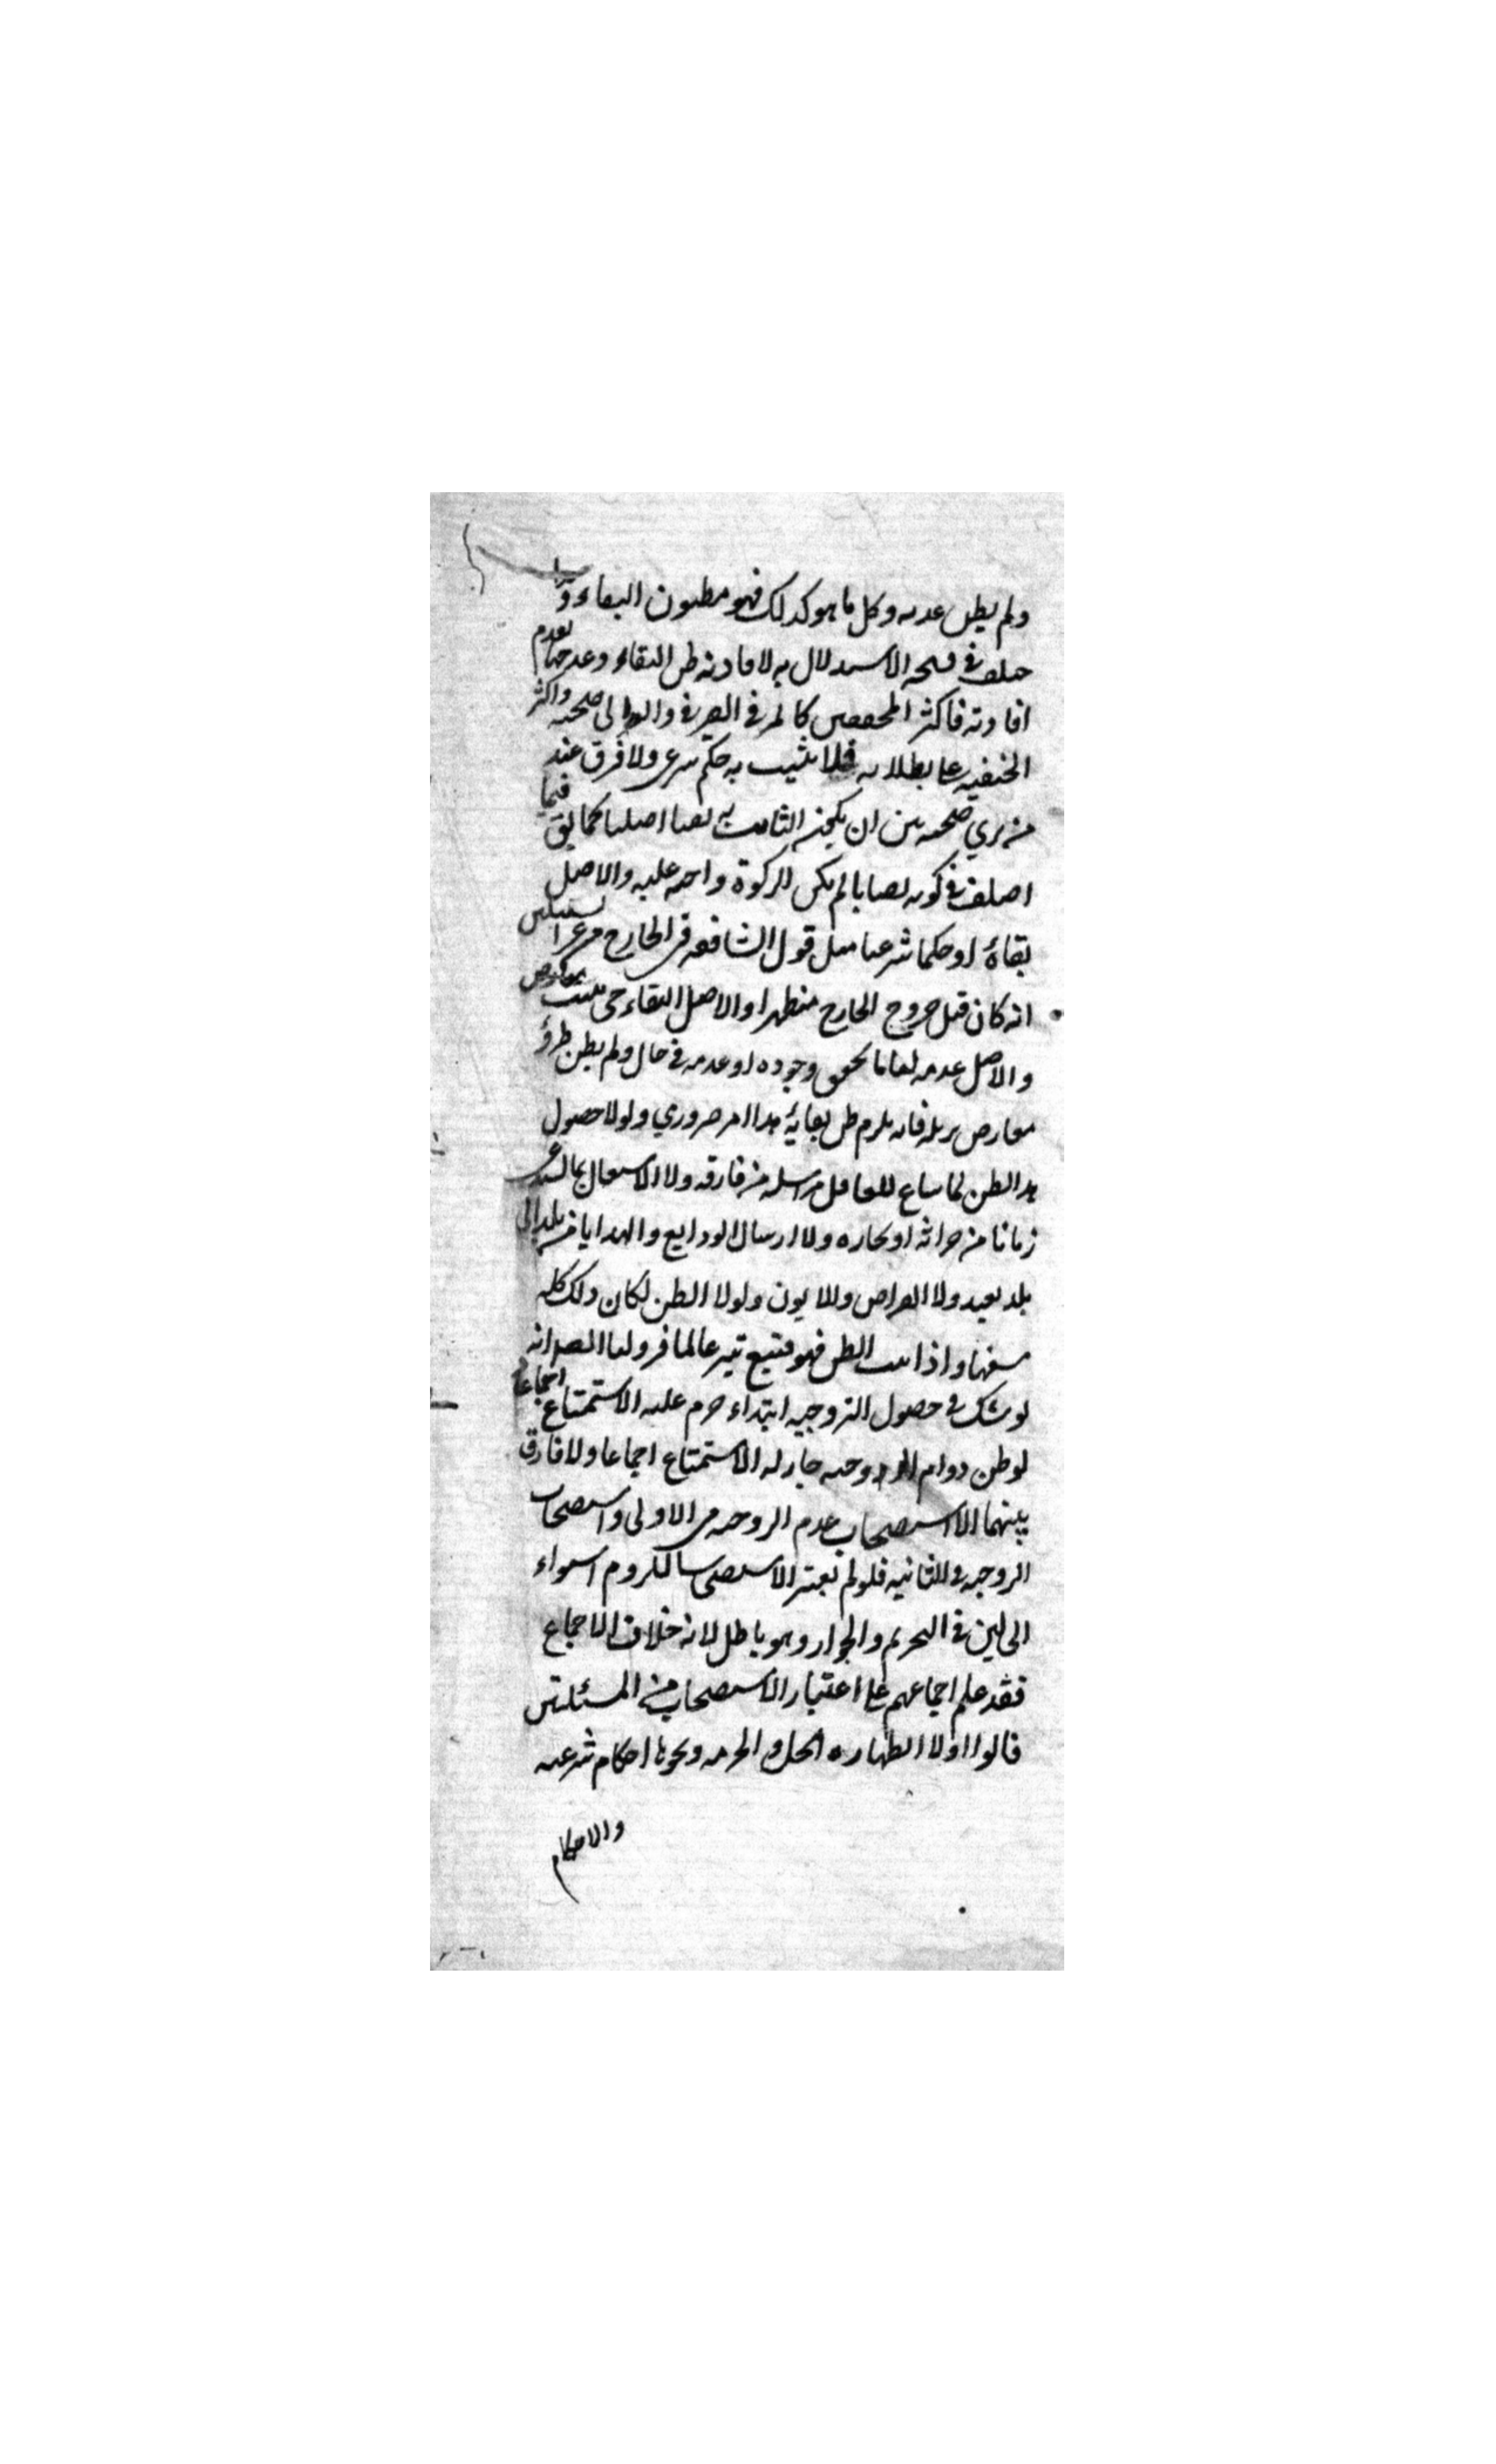 ولم يظن عدمه وكل ما هو كذلك فهو مظنون البقاء وقد
اختلف في صحة الاستدلال به لافادته ظن البقاء وعدمها لعدم
افادته فاكثر المحققين كالمزني والصيرفي والغزالي صحته واكثر
الحنفيه على بطلانه فلا يثبت به حكم شرعى ولا فرق عند
من يرى صحته بين ان يكون الثابت به نفيا اصليا كما يق فيما
اختلف في كونه نصابا لم يكن الزكوة واجبه عليه والاصل
بقاؤه او حكما شرعيا مثل قول الشافعيه في الخارج من غير السبيلين
انه كان قبل خروج الخارج متطهرا والاصل البقاء حتى يثبت معارض
والاصل عدمه لنا ما تحقق وجوده او عدمه في حال ولم يظن طرؤ
معارض يزيله فانه يلزم ظن بقائه هذا امر ضروري ولولا حصول
هذا الظن لما ساغ للعاقل مراسله من فارقه ولا الاشتغال بما يستدعى
زمانا من حراثه او تجاره ولا ارسال الودايع والهدايا من بلد الى
بلد بعيد ولا القراض والديون ولولا الظن لكان ذلك كله
سفها واذا ثبت الظن فهو متبع لما مر ولنا ايضا انه
لو شك في حصول الزوجيه ابتداء حرم عليه الاستمتاع اجماعا
لو ظن دوام الزوجيه جاز له الاستمتاع اجماعا ولا فارق
بينهما الا استصحاب عدم الزوجيه في الاولى واستصحاب
الزوجيه في الثانيه فلو لم يعتبر الاستصحاب لزم استواء
الحالين في التحريم والجواز وهو باطل لانه خلاف الاجماع
فقد علم اجماعهم على اعتبار الاستصحاب في المسئلتين
قالوا اولا الطهاره والحل والحرمه ونحوها احكام شرعيه
والاحكام